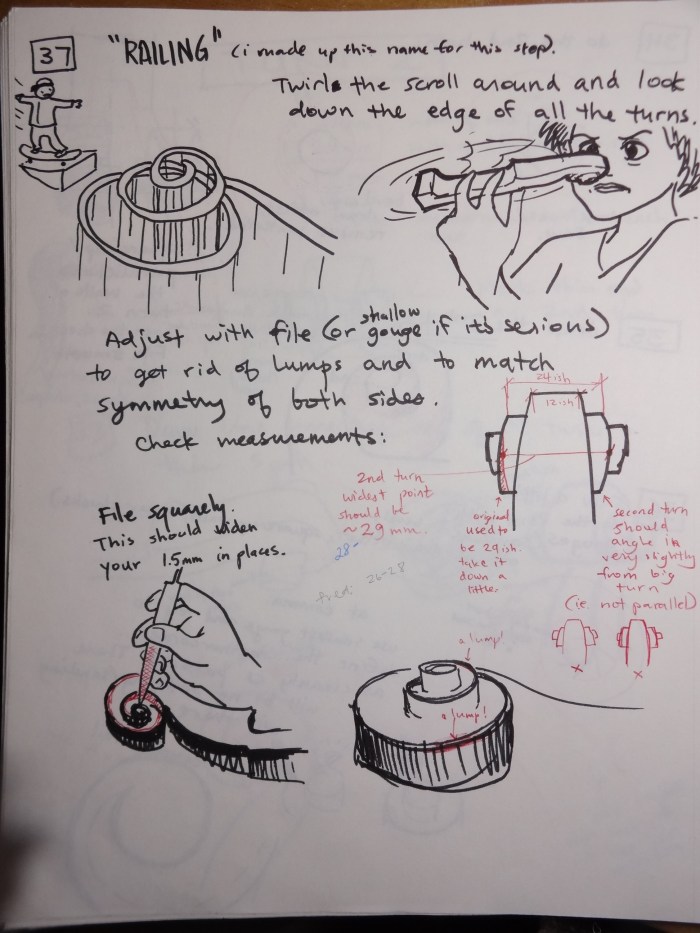 37
"RAILING" (i made up this name for this step).
Twirl the scroll around and look
down the edge of all the turns.
Adjust with file (or shallow gouge if it's serious)
to get rid of lumps and to match
symmetry of both sides.
Check measurements:
24ish
12ish
2nd turn
widest point
should be
~29mm.
28-
fred: 26-28
original
used to
be 29ish.
take it
down a
little.
second turn
should
angle in
very slightly
from big
turn
(ie. not parallel)
x
x
File squarely.
This should widen
your 1.5mm in places.
a lump!
a lump!